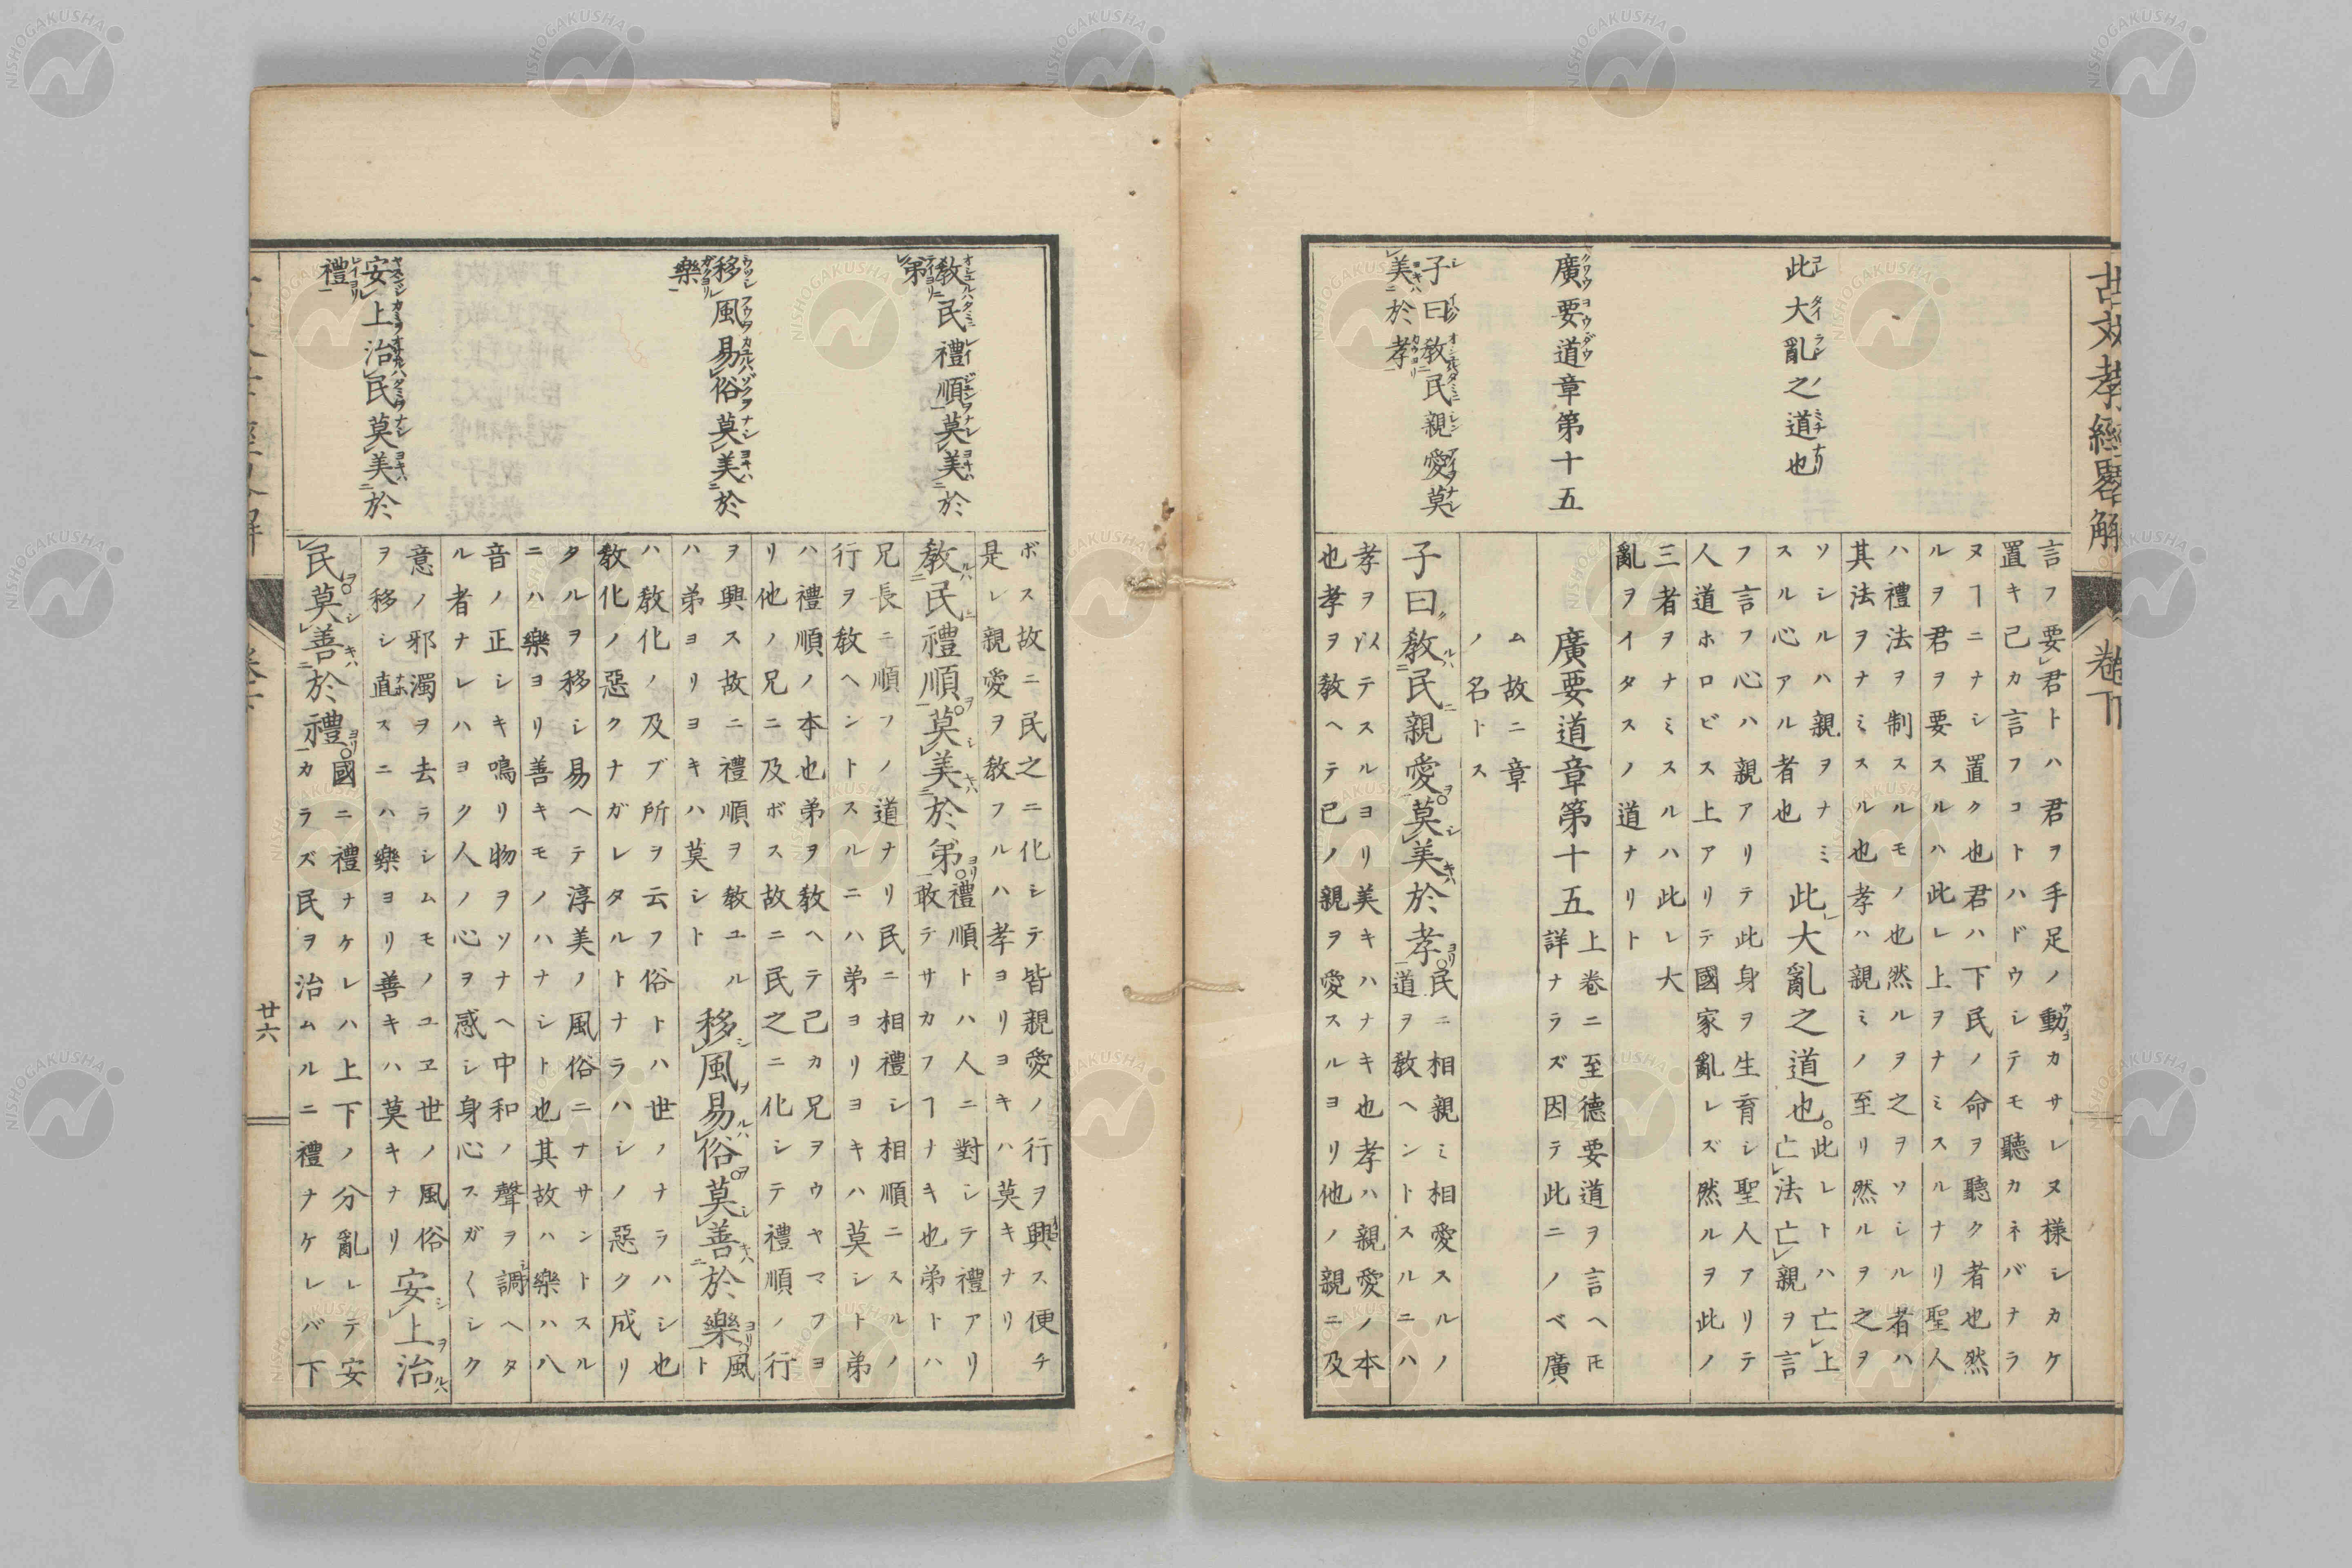 古文孝經畧解 卷下
此大亂之道也
廣要道章第十五
子曰教民親愛莫
美於孝
言フ要君トハ君ヲ手足ノ動カサレヌ様シカケ
置キ己カ言フコトハドウシテモ聽カネバナラ
ヌヿニナシ置ク也君ハ下民ノ命ヲ聽ク者也然
ルヲ君ヲ要スルハ此レ上ヲナミスルナリ聖人
ハ禮法ヲ制スルモノ也然ルヲ之ヲソシル者ハ
其法ヲナミスル也孝ハ親ミノ至リ然ルヲ之ヲ
ソシルハ親ヲナミ
スル心アル者也
此大亂之道也
此レトハ亡上
亡法亡親ヲ言
フ言フ心ハ親アリテ此身ヲ生育シ聖人アリテ
人道ホロビス上アリテ國家亂レズ然ルヲ此ノ
三者ヲナミスルハ此レ大
亂ヲイタスノ道ナリト
廣要道章第十五
上卷ニ至德要道ヲ言ヘ𪜈
詳ナラズ因テ此ニノベ廣
ム故ニ章
ノ名トス
子曰教民親愛莫美於孝
民ニ相親ミ相愛スルノ
道ヲ教ヘントスルニハ
孝ヲ以テスルヨリ美キハナキ也孝ハ親愛ノ本
也孝ヲ教ヘテ己ノ親ヲ愛スルヨリ他ノ親ニ及
教民禮順莫美於
弟
移風易俗莫美於
樂
安上治民莫美於
禮
ボス故ニ民之ニ化シテ皆親愛ノ行ヲ興ス便チ
是レ親愛ヲ教フルハ孝ヨリヨキハ莫キナリ
教民禮順莫美於弟
禮順トハ人ニ對シテ禮アリ
敢テサカフヿナキ也弟トハ
兄長ニ順フノ道ナリ民ニ相禮シ相順ニスルノ
行ヲ教ヘントスルニハ弟ヨリヨキハ莫シト弟
ハ禮順ノ本也弟ヲ教ヘテ己カ兄ヲウヤマフヨ
リ他ノ兄ニ及ボス故ニ民之ニ化シテ禮順ノ行
ヲ興ス故ニ禮順ヲ教ユル
ハ弟ヨリヨキハ莫シト
移風易俗莫善於樂
風
ト
ハ教化ノ及ブ所ヲ云フ俗トハ世ノナラハシ也
教化ノ惡クナガレタルトナラハシノ惡ク成リ
タルヲ移シ易ヘテ淳美ノ風俗ニナサントスル
ニハ樂ヨリ善キモノハナシト也其故ハ樂ハ八
音ノ正シキ鳴リ物ヲソナヘ中和ノ聲ヲ調ヘタ
ル者ナレハヨク人ノ心ヲ感シ身心スガ〱シク
意ノ邪濁ヲ去ラシムモノユヱ世ノ風俗
ヲ移シ直スニハ樂ヨリ善キハ莫キナリ
安上治
民莫善於禮
國ニ禮ナケレハ上下ノ分亂レテ安
カラズ民ヲ治ムルニ禮ナケレバ下
廿六